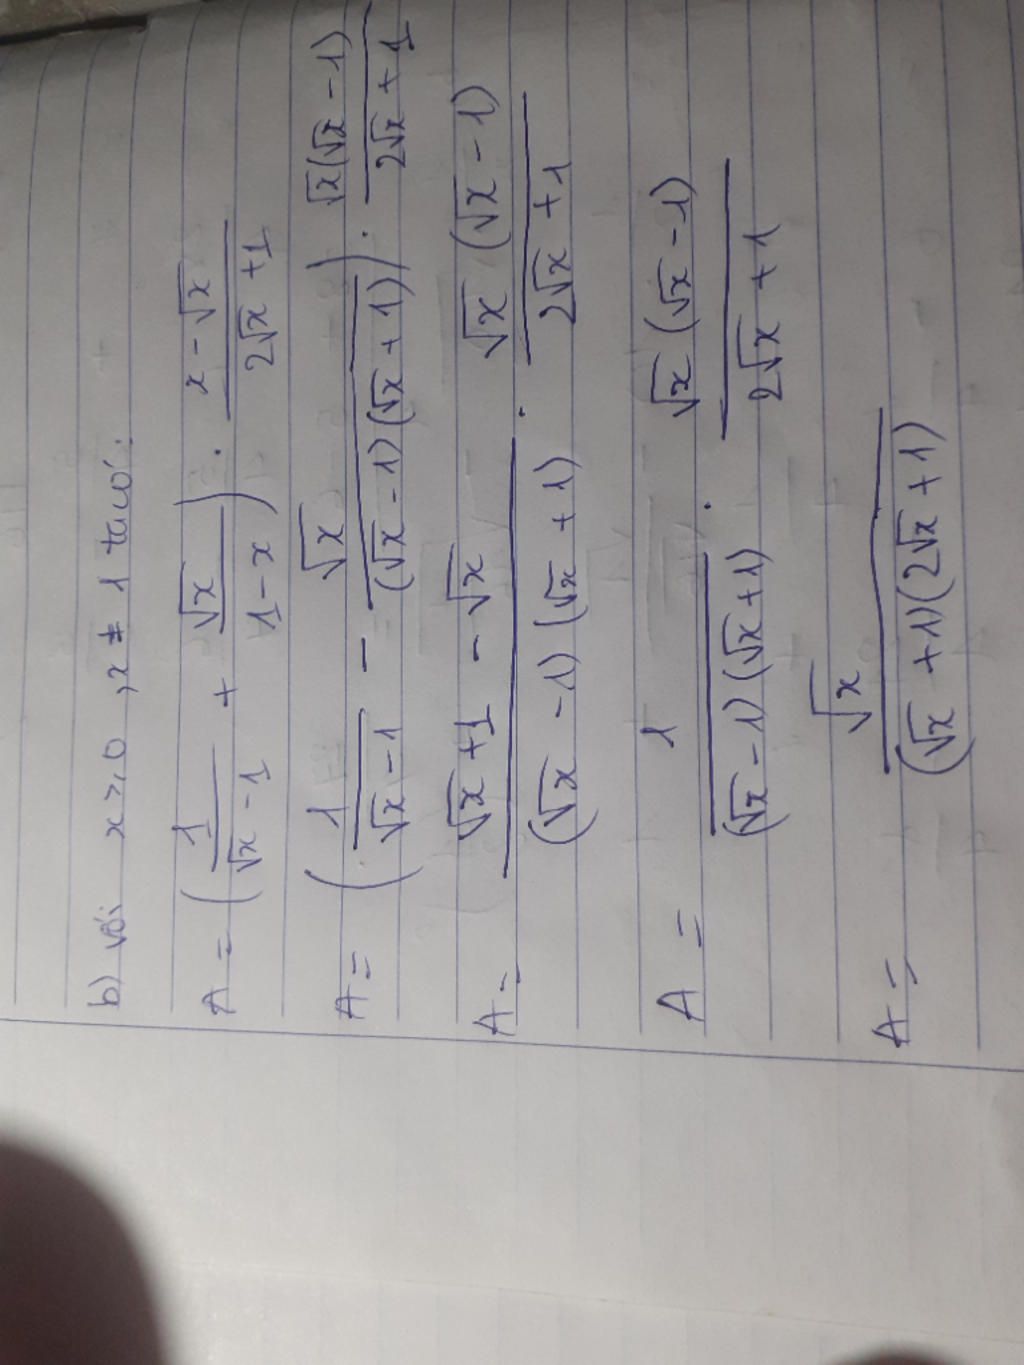 b) với x ≥ 0, x ≠ 1 ta có:
A = (1/(√x - 1) + √x/(1 - x)) . (x - √x)/(2√x + 1)
A = (1/(√x - 1) - √x/((√x - 1)(√x + 1))) . √x(√x - 1)/(2√x + 1)
A = (√x + 1 - √x)/((√x - 1)(√x + 1)) . √x(√x - 1)/(2√x + 1)
A = 1/((√x - 1)(√x + 1)) . √x(√x - 1)/(2√x + 1)
A = √x/((√x + 1)(2√x + 1))